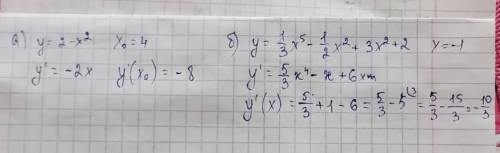 а) y = 2 - x² x₀ = 4
y' = -2x y'(x₀) = -8
б) y = 1/3 x⁵ - 1/2 x² + 3x² + 2 x = -1
y' = 5/3 x⁴ - x + 6x
y'(x) = 5/3 + 1 - 6 = 5/3 - 5⁽³ = 5/3 - 15/3 = -10/3